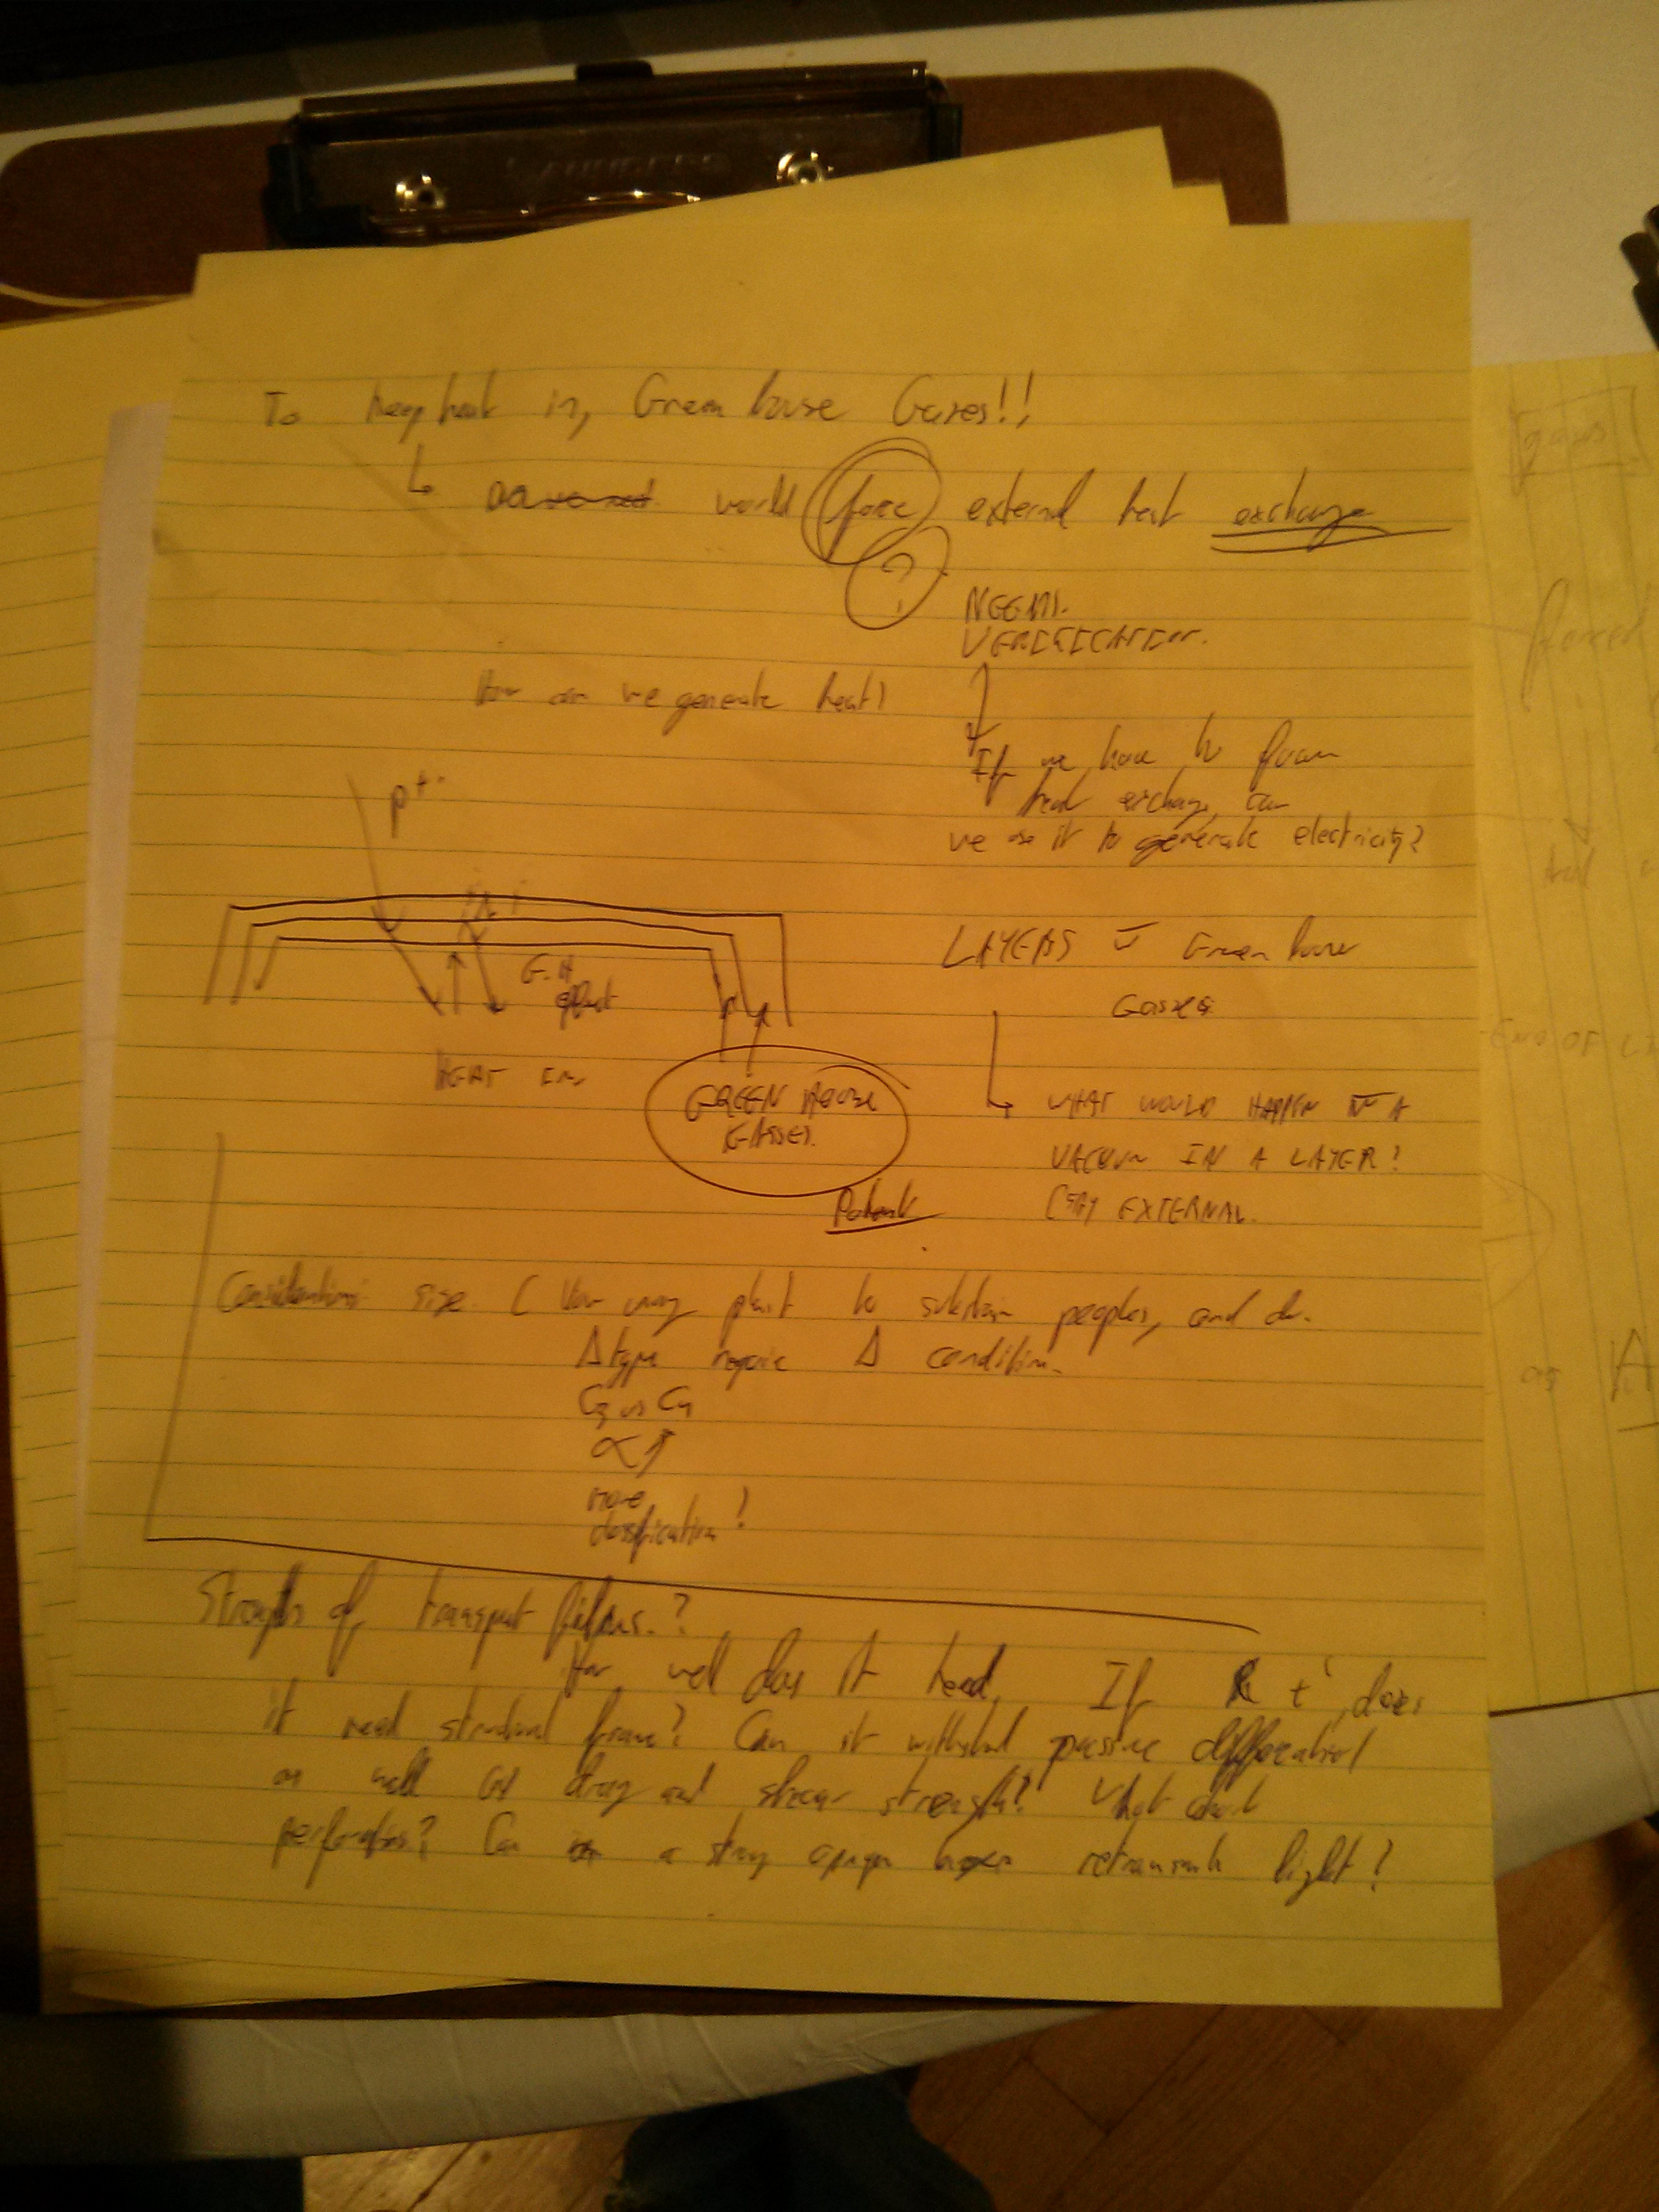 To keep heat in, Green house Gases!!
world force external heat exchange
?
NEEDS
VERIFICATION.
How can we generate heat?
If we have to force
heat exchange, can
we use it to generate electricity?
p+
G.H
effect
HEAT IN
GREEN HOUSE
GASSES.
Patent
LAYERS Green house
Gases
WHAT WOULD HAPPEN A
VACUUM IN A LAYER?
(SAY EXTERNAL
Considerations size ( How many plant to sustain peoples, and
Δ type require Δ condition
C3 vs C4
∝
more
classification?
Strength of transport
How well does it heat, If t', does
it need structural frame? Can it withstand passive
as well as drag and shear strength? What about
perforation? Can a retransmit light?
gases
forced
heat
END OF LI
as A